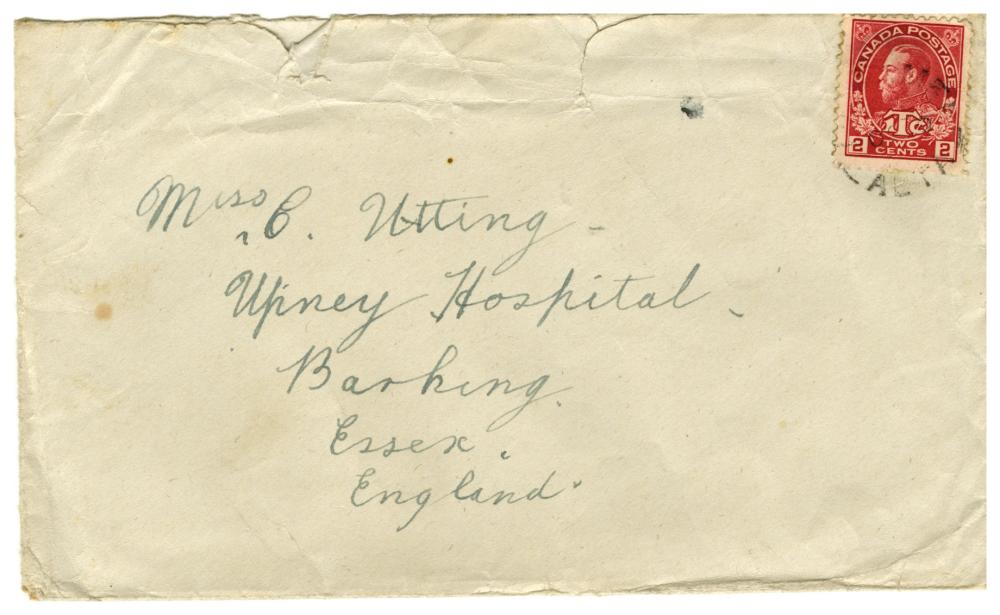 CANADA POSTAGE
1Tc
2 TWO CENTS 2
Miss C. Utting -
Upney Hospital -
Barking.
Essex.
England.